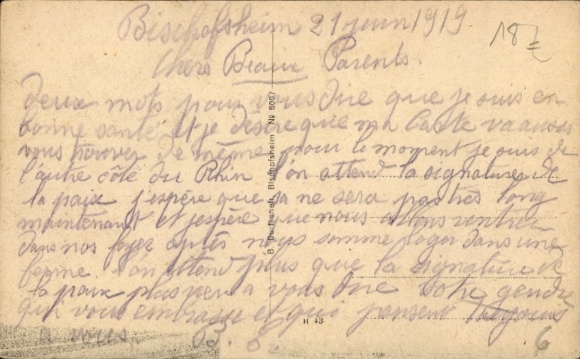 Bischofsheim 21 juin 1919.
18
Chers Beaux Parents.
deux mots pour vous dire que je suis en
bonne santé et je désire que ma Carte va aussi
vous trouver de même pour le moment je suis de
l'autre côté du Rhin l'on attend la signature de
la paix j'espère que sa ne sera pas très long
maintenant et j'espère que nous allons rentrer
dans nos foyer après nous somme loger dans une
ferme l'on attend plus que la signature de
la paix plus rien a vous dire votre gendre
qui vous embrasse et qui pensent toujours
a vous
B. Deutscheh, Bischofsheim № 5007
H 43
6